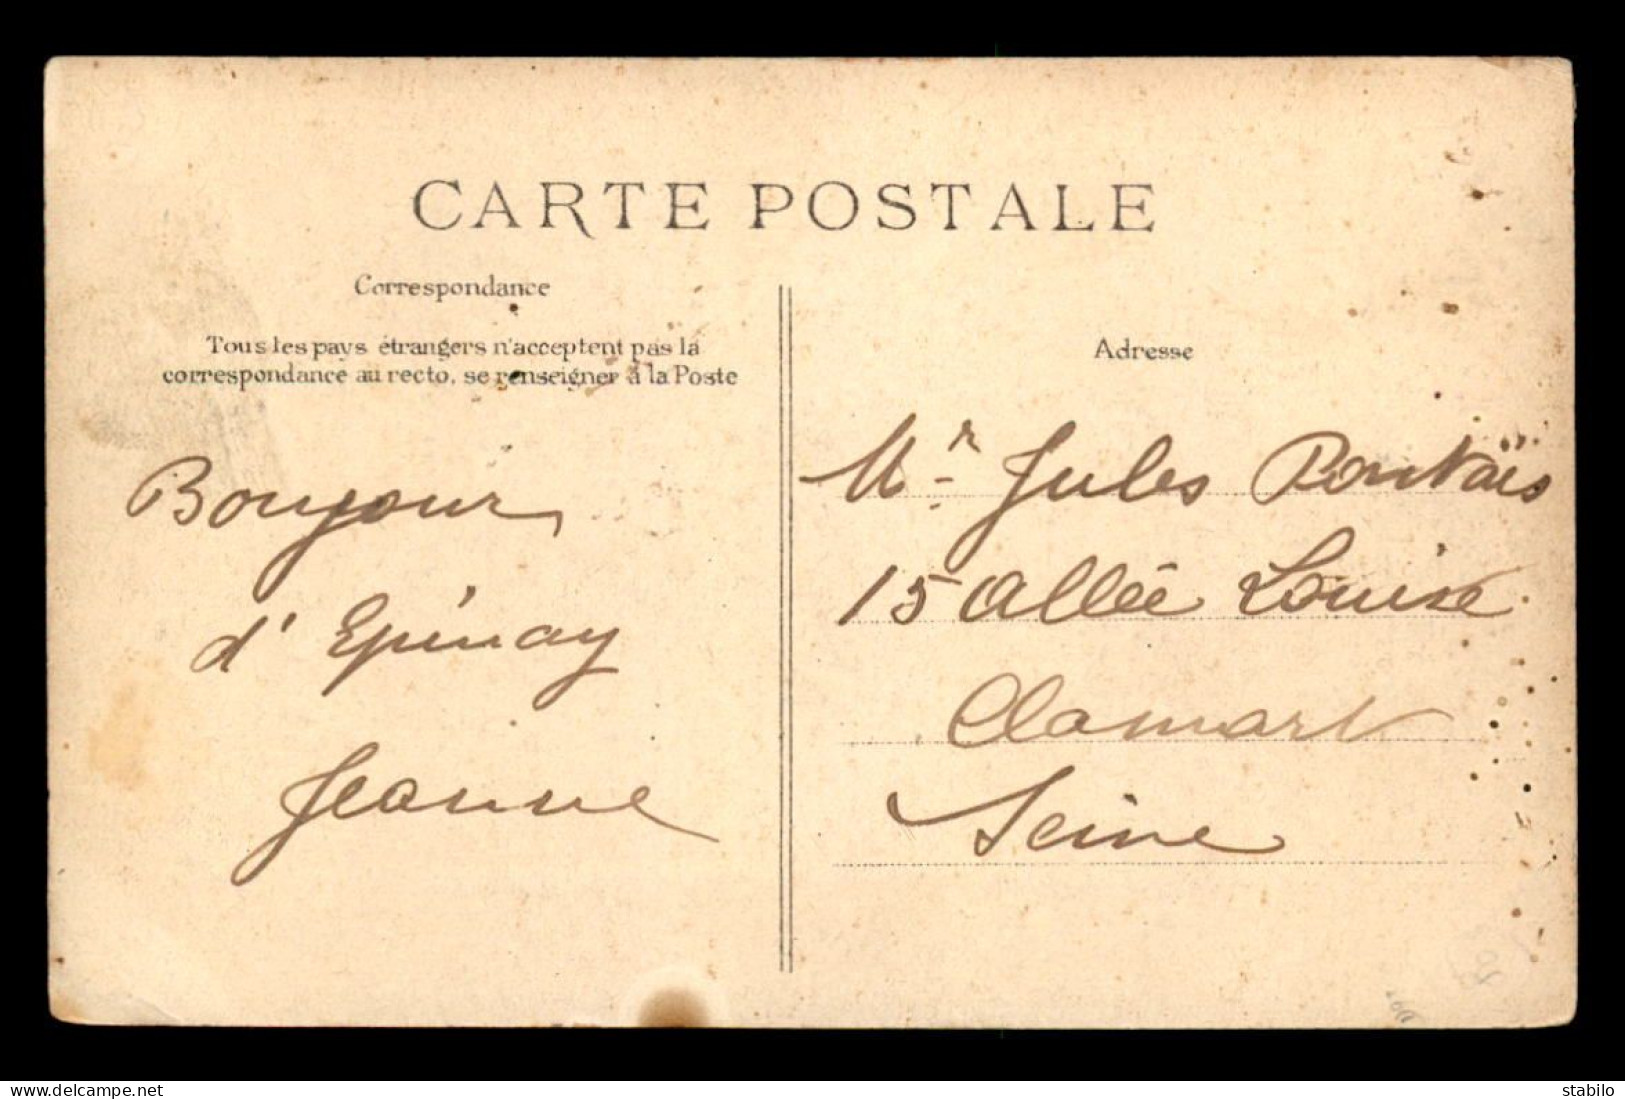 CARTE POSTALE
Correspondance
Tous les pays étrangers n'acceptent pas la
correspondance au recto, se renseigner à la Poste
Bonjour
d'Epinay
Jeanne
Adresse
Mr Jules Pontaïs
15 Allée Louise
Clamart
Seine
www.delcampe.net
stabilo